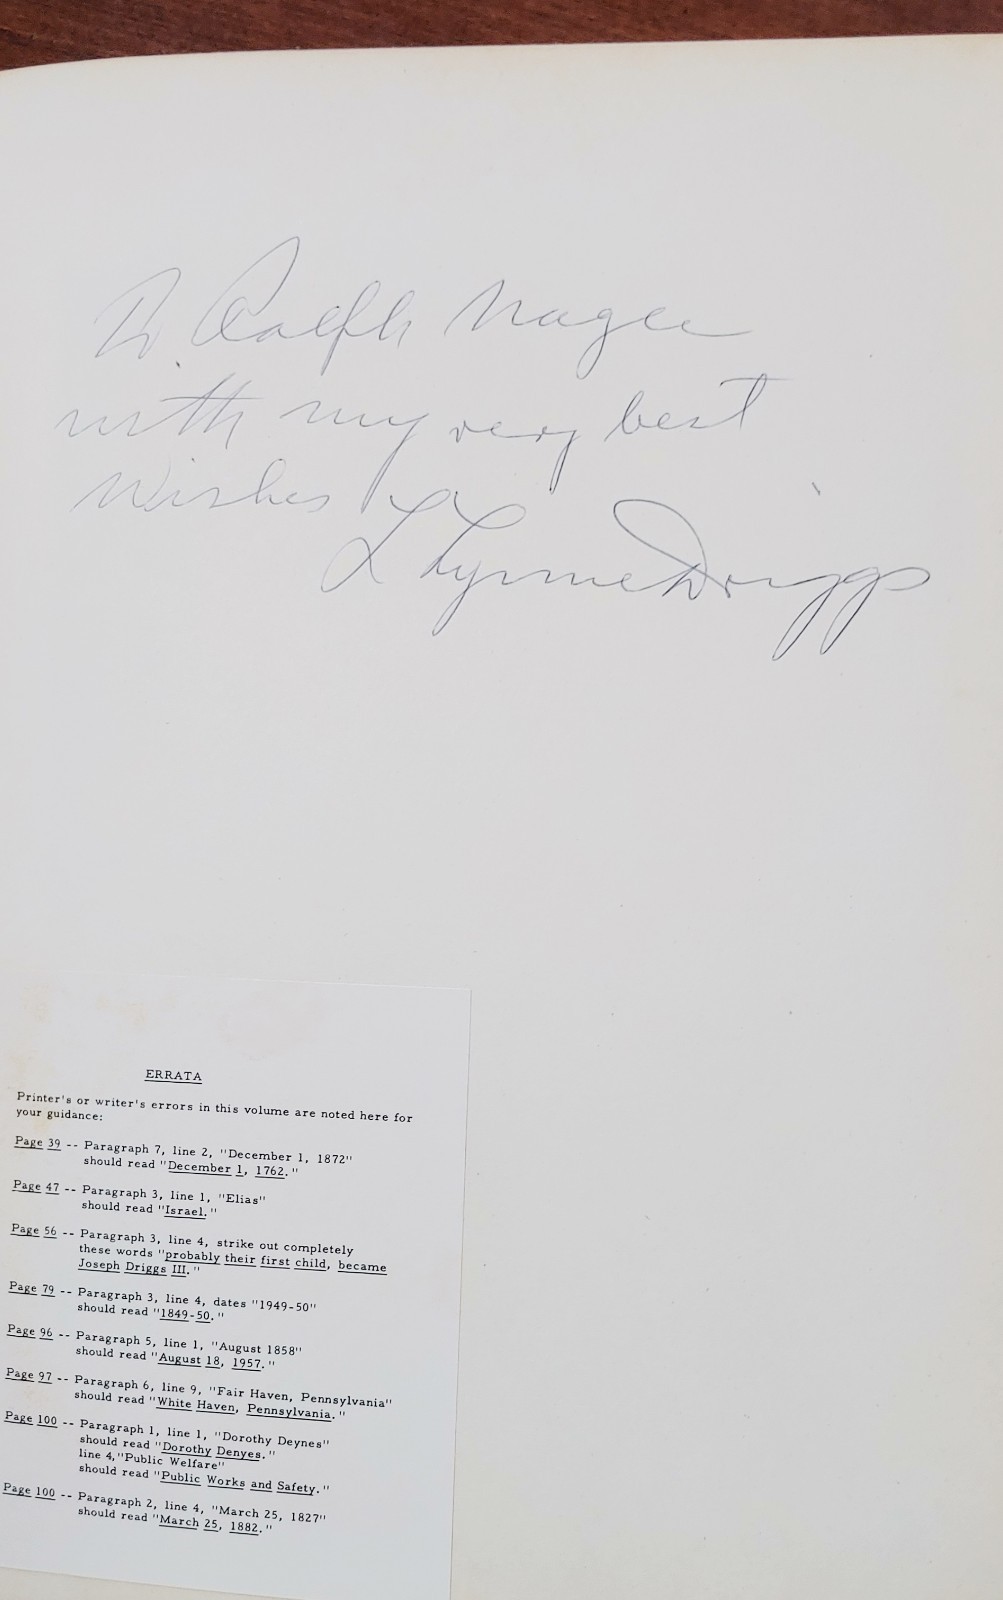 To Ralph Magee
with my very best
Wishes
L Lynne Driggs
ERRATA
Printer's or writer's errors in this volume are noted here for
your guidance:
Page 39 -- Paragraph 7, line 2, "December 1, 1872"
should read "December 1, 1762."
Page 47 -- Paragraph 3, line 1, "Elias"
should read "Israel."
Page 56 -- Paragraph 3, line 4, strike out completely
these words "probably their first child, became
Joseph Driggs III."
Page 79 -- Paragraph 3, line 4, dates "1949-50"
should read "1849-50."
Page 96 -- Paragraph 5, line 1, "August 1858"
should read "August 18, 1957."
Page 97 -- Paragraph 6, line 9, "Fair Haven, Pennsylvania"
should read "White Haven, Pennsylvania."
Page 100 -- Paragraph 1, line 1, "Dorothy Deynes"
should read "Dorothy Denyes."
line 4, "Public Welfare"
should read "Public Works and Safety."
Page 100 -- Paragraph 2, line 4, "March 25, 1827"
should read "March 25, 1882."